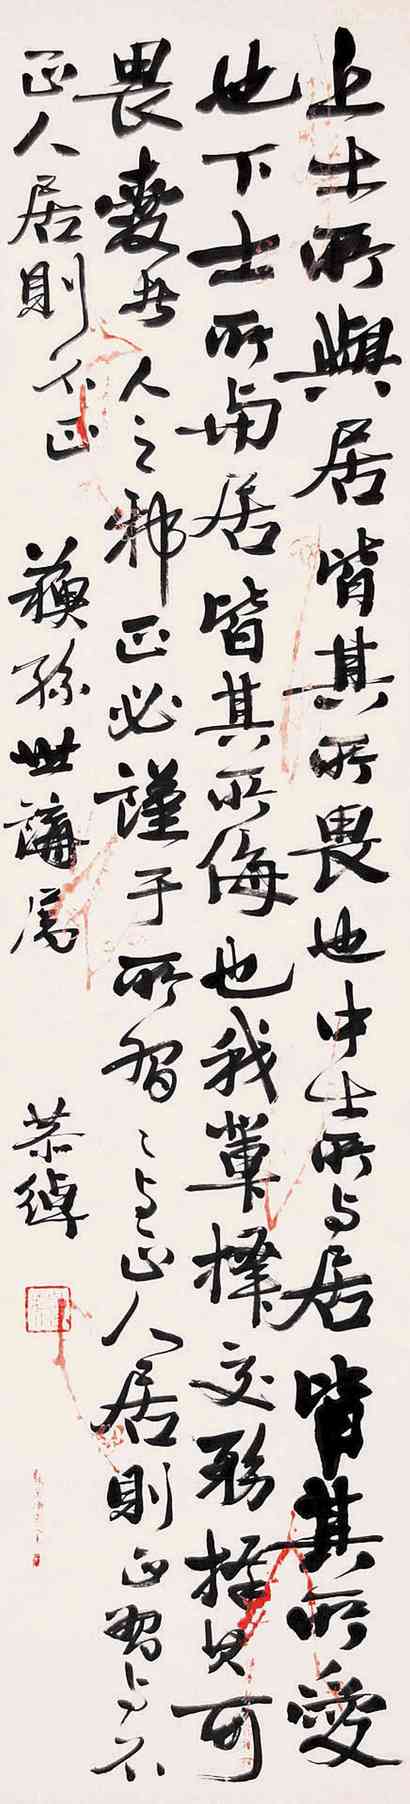 上士所與居皆其所畏也中士所与居皆其所愛
也下士所与居皆其所侮也我輩擇交務擇其可
畏愛者人之邪正必謹于所習習与正人居則正習与不
正人居則不正
蘋孫世講屬
恭綽